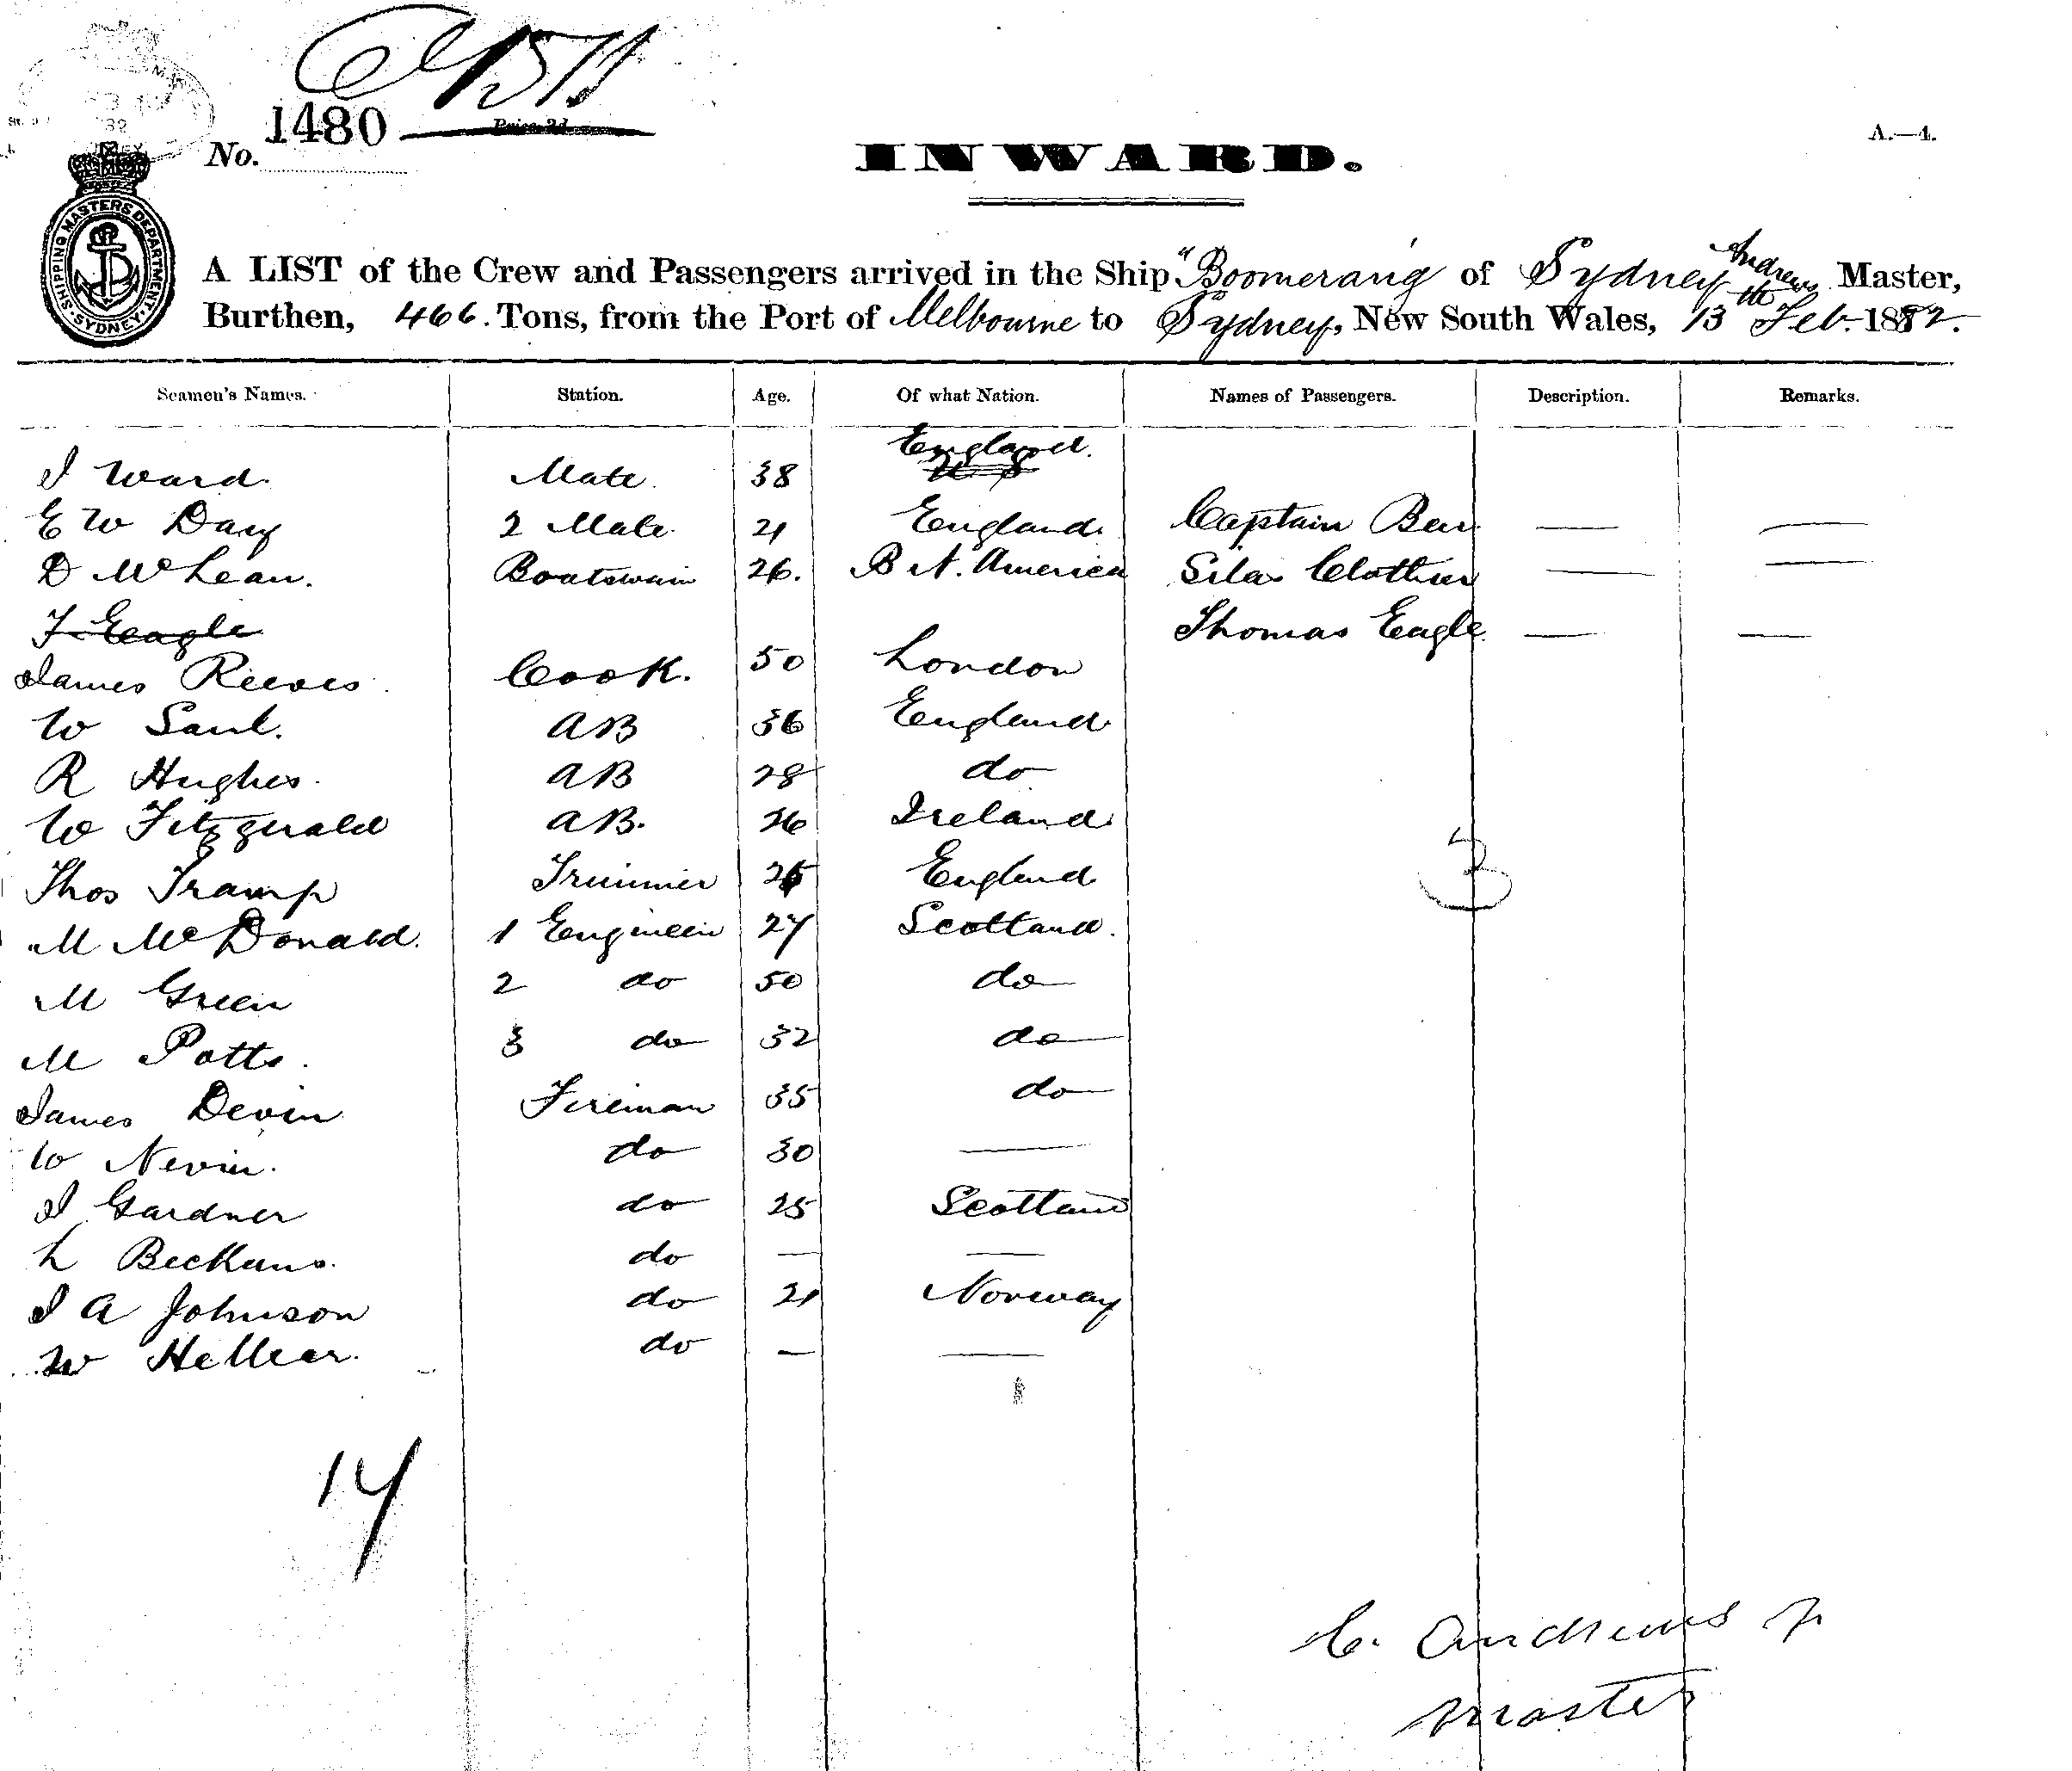 No. 1480
Price 3d.
A.—4.
INWARD.
SHIPPING MASTERS DEPARTMENT SYDNEY
A LIST of the Crew and Passengers arrived in the Ship "Boomerang of Sydney Andrews Master,
Burthen, 466. Tons, from the Port of Melbourne to Sydney, New South Wales, 13th Feb. 1882.
Seamen's Names. Station. Age. Of what Nation. Names of Passengers. Description. Remarks.
J Ward. Mate. 38 England.
E W Day 2 Mate. 21 England. Captain — —
D McLean. Boatswain 26. B N. America Silas Clothier — —
T. Eagle Thomas Eagle — —
James Reeves. Cook. 50 London
W Saul. AB 36 England
R Hughes. AB 28 do
W Fitzgerald AB. 26 Ireland
Thos Tramp Trimmer England
M McDonald. 1 Engineer 27 Scotland.
M Green 2 do 50 do
M Potts. 3 do 32 do
James Devin Fireman 35 do
W Nevin. do 30 —
J Gardner do 25 Scotland
L do — —
J A Johnson do 21 Norway
W Hellier. do — —
3
17
C. Andrews
Master